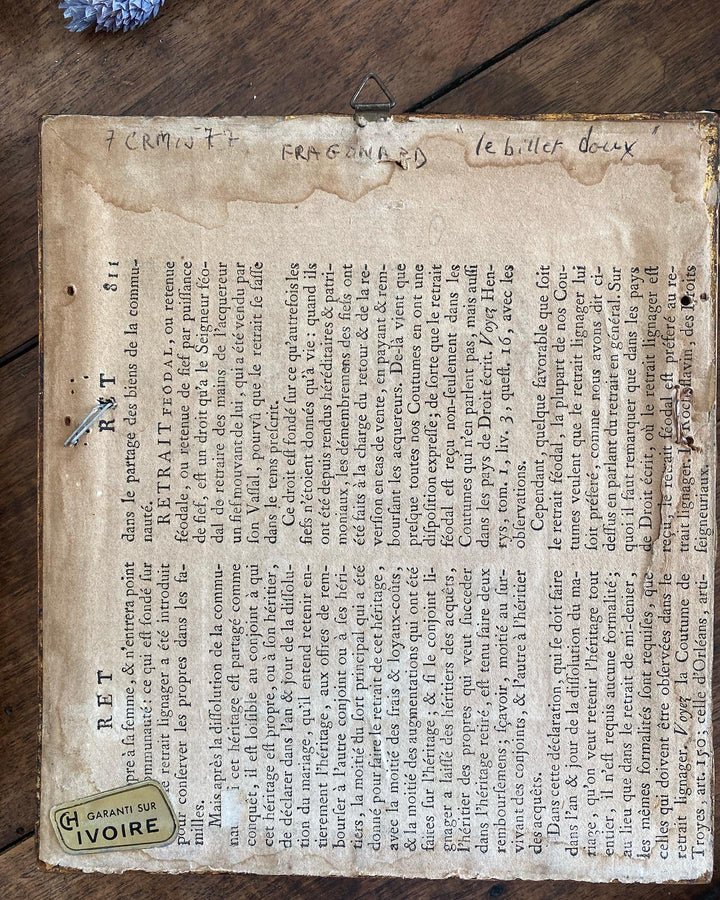 FRAGONARD "le billet doux"
RET
pre à sa femme, & n'entrera point
ommunauté: ce qui est fondé sur
e retrait lignager a été introduit
pour conserver les propres dans les fa-
milles.
Mais après la dissolution de la commu-
i cet héritage est partagé comme
conquêt, il est loisible au conjoint à qui
cet héritage est propre, ou à son héritier,
de déclarer dans l'an & jour de la dissolu-
tion du mariage, qu'il entend retenir en-
tierement l'héritage, aux offres de rem-
bourser à l'autre conjoint ou à ses héri-
tiers, la moitié du sort principal qui a été
donné pour faire le retrait de cet héritage,
avec la moitié des frais & loyaux-coûts,
& la moitié des augmentations qui ont été
faites sur l'héritage; & si le conjoint li-
gnager a laissé des héritiers des acquêts,
l'héritier des propres qui veut succeder
dans l'héritage retiré, est tenu faire deux
remboursemens; sçavoir, moitié au sur-
vivant des conjoints, & l'autre à l'héritier
des acquêts.
Dans cette déclaration, qui se doit faire
dans l'an & jour de la dissolution du ma-
riage, qu'on veut retenir l'héritage tout
entier, il n'est requis aucune formalité;
au lieu que dans le retrait de mi-denier,
les mêmes formalités sont requises, que
celles qui doivent être observées dans le
retrait lignager. Voyez la Coutume de
Troyes, art. 150; celle d'Orléans, arti-
RET 811
dans le partage des biens de la commu-
nauté.
RETRAIT FEODAL, ou retenue
féodale, ou retenue de fief par puissance
de fief, est un droit qu'a le Seigneur féo-
dal de retraire des mains de l'acquereur
un fief mouvant de lui, qui a été vendu par
son Vassal, pourvû que le retrait se fasse
dans le tems prescrit.
Ce droit est fondé sur ce qu'autrefois les
fiefs n'étoient donnés qu'à vie: quand ils
ont été depuis rendus héréditaires & patri-
moniaux, les démembremens des fiefs ont
été faits à la charge du retour & de la re-
version en cas de vente, en payant & rem-
boursant les acquereurs. De-là vient que
presque toutes nos Coutumes en ont une
disposition expresse; de sorte que le retrait
féodal est reçu non-seulement dans les
Coutumes qui n'en parlent pas, mais aussi
dans les pays de Droit écrit. Voyez Hen-
rys, tom. 1, liv. 3, quest. 16, avec les
observations.
Cependant, quelque favorable que soit
le retrait féodal, la plupart de nos Cou-
tumes veulent que le retrait lignager lui
soit préferé, comme nous avons dit ci-
dessus en parlant du retrait en général. Sur
quoi il faut remarquer que dans les pays
de Droit écrit, où le retrait lignager est
reçu, le retrait féodal est préferé au re-
trait lignager. Rocheflavin, des Droits
seigneuriaux,
CH GARANTI SUR
IVOIRE